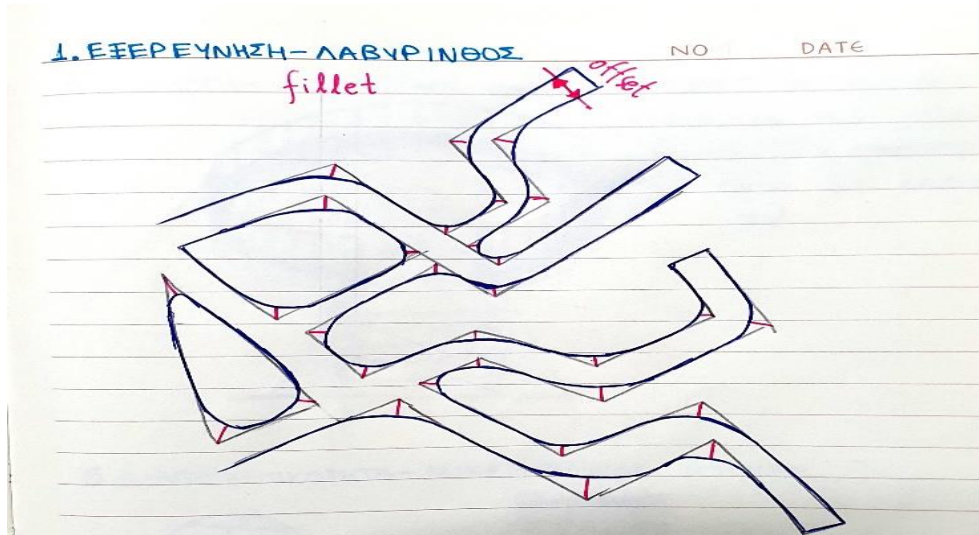 1. ΕΞΕΡΕΥΝΗΣΗ - ΛΑΒΥΡΙΝΘΟΣ NO DATE
fillet
offset